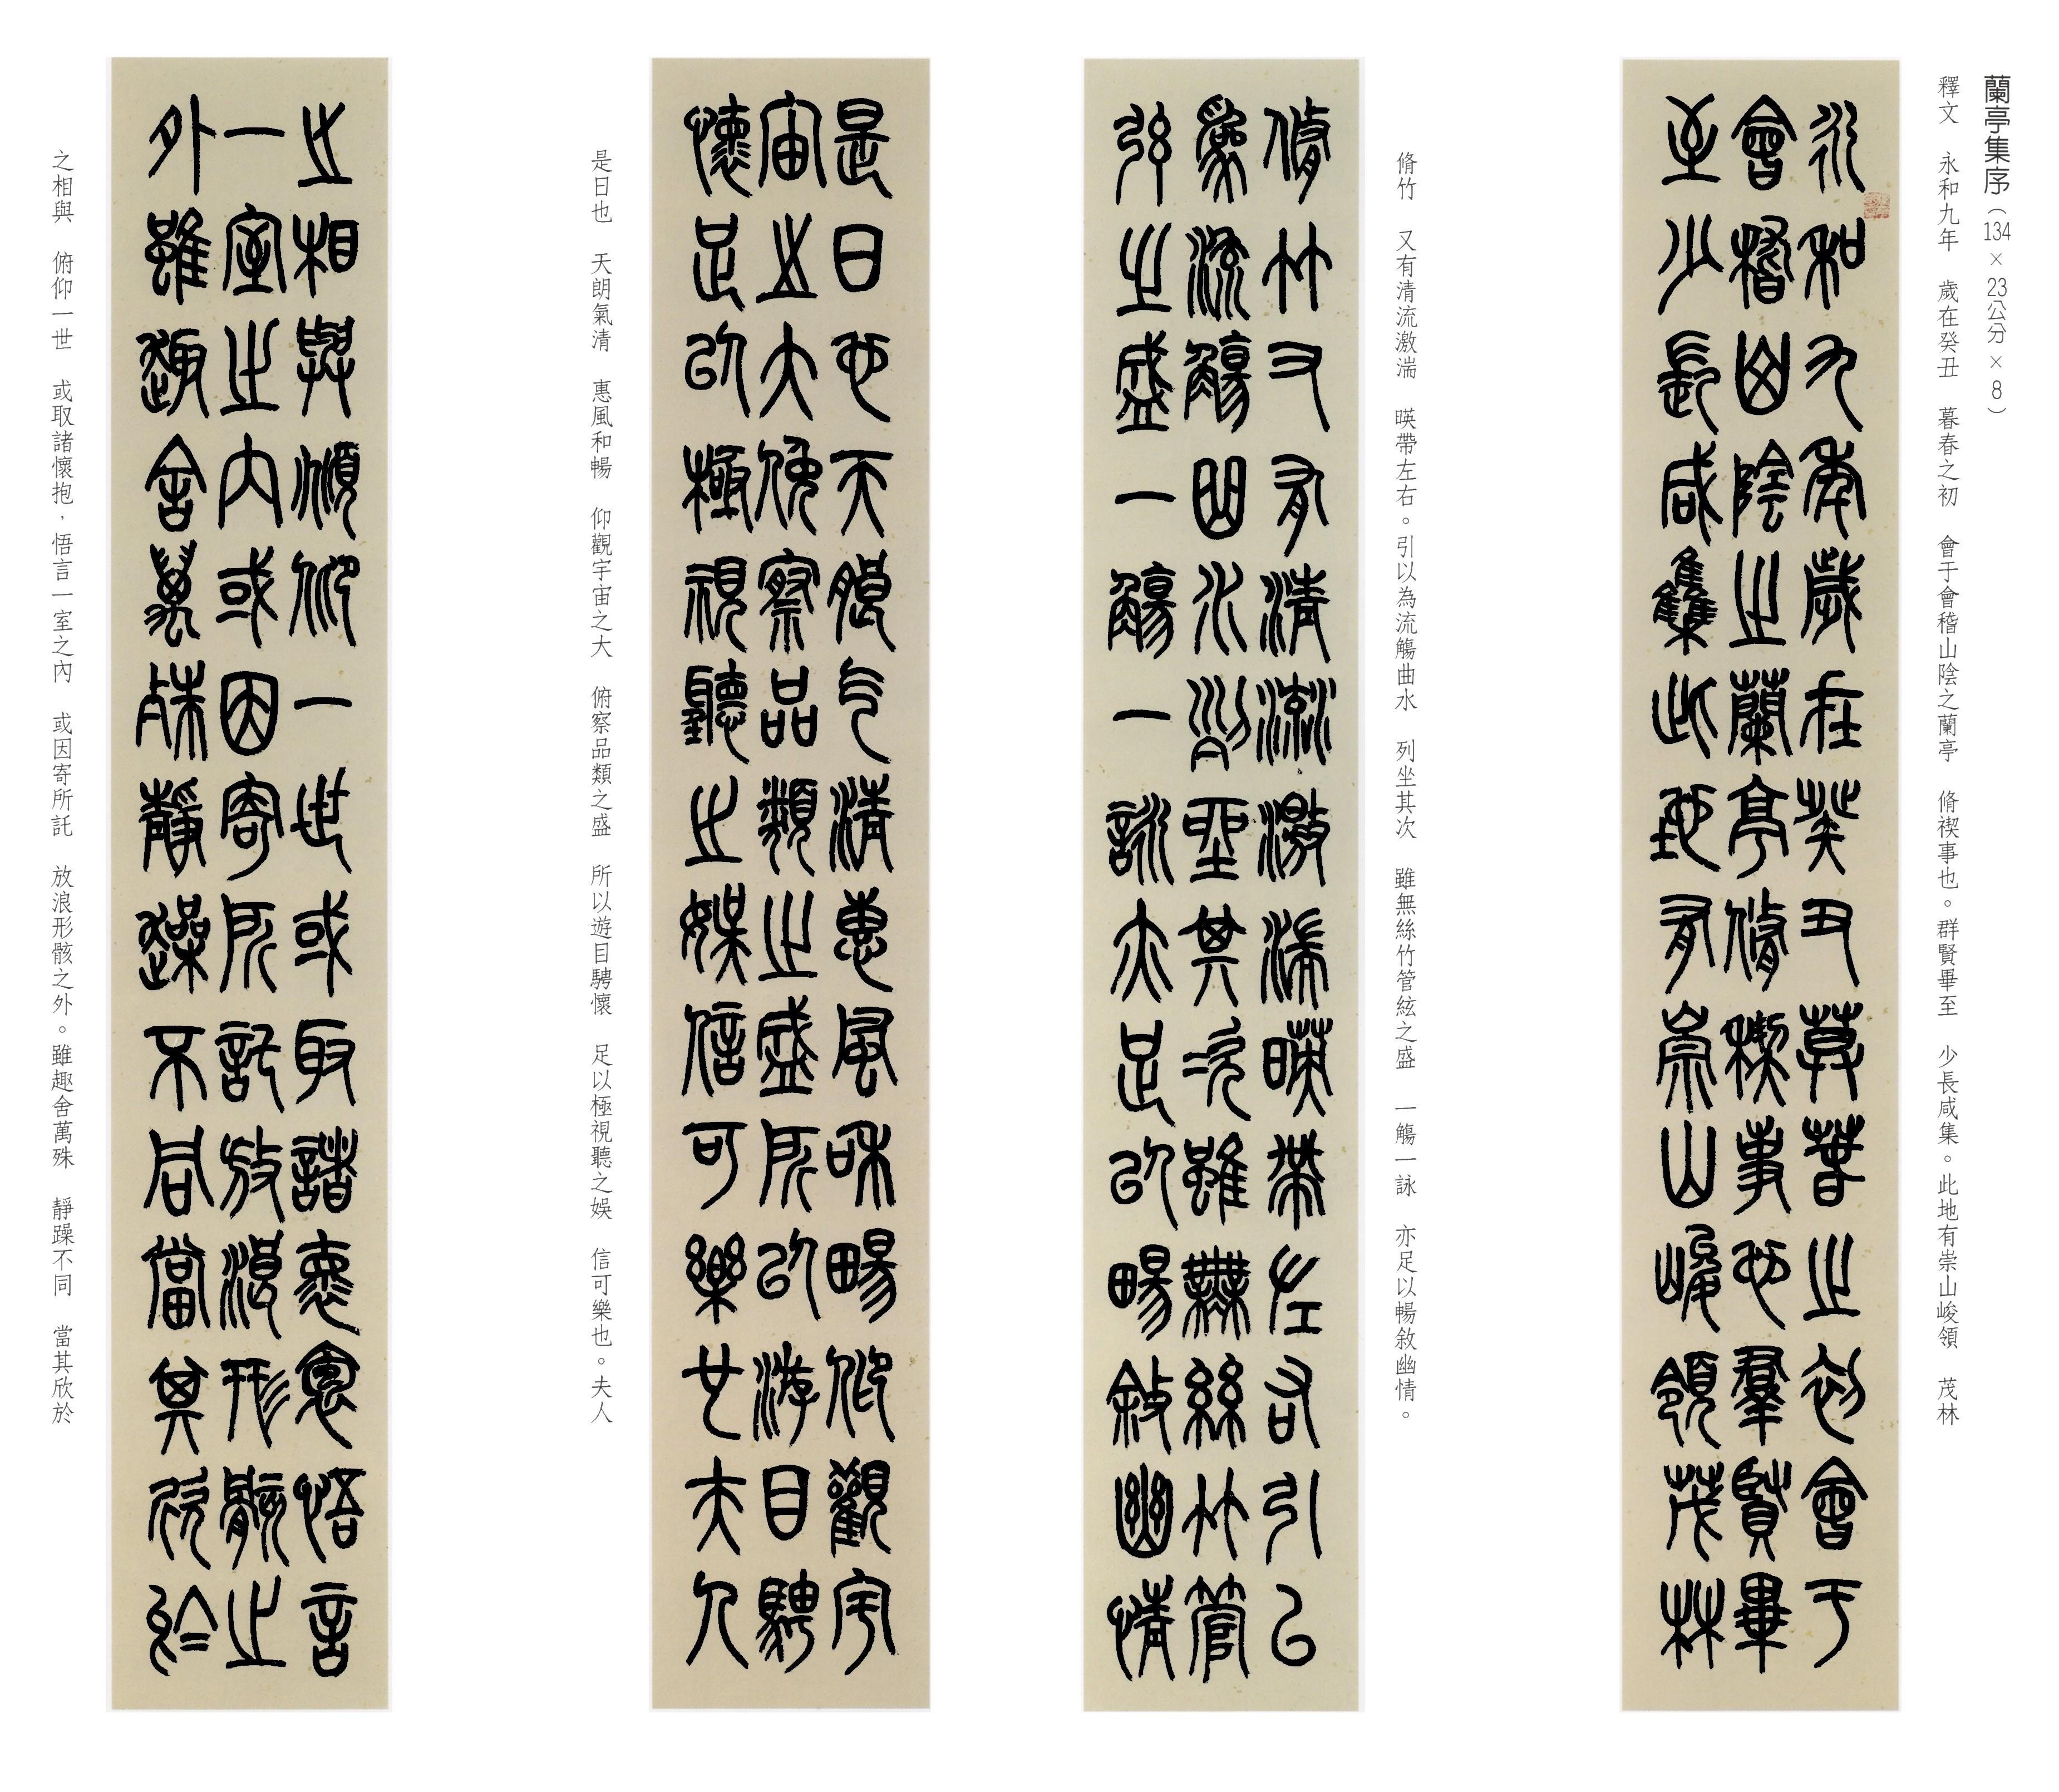 蘭亭集序（134×23公分×8）
釋文　永和九年　歲在癸丑　暮春之初　會于會稽山陰之蘭亭　脩禊事也。群賢畢至　少長咸集。此地有崇山峻領　茂林
永和九年歲在癸丑暮春之初會于
會稽山陰之蘭亭脩禊事也群賢畢
至少長咸集此地有崇山峻領茂林
脩竹　又有清流激湍　暎帶左右。引以為流觴曲水　列坐其次　雖無絲竹管絃之盛　一觴一詠　亦足以暢敘幽情。
脩竹又有清流激湍暎帶左右引以
為流觴曲水列坐其次雖無絲竹管
弦之盛一觴一詠亦足以暢敘幽情
是日也　天朗氣清　惠風和暢　仰觀宇宙之大　俯察品類之盛　所以遊目騁懷　足以極視聽之娛　信可樂也。夫人
是日也天朗气清惠風和暢仰觀宇
宙之大俛察品類之盛所以游目騁
懷足以極視聽之娛信可樂也夫人
之相與　俯仰一世　或取諸懷抱，悟言一室之內　或因寄所託　放浪形骸之外。雖趣舍萬殊　靜躁不同　當其欣於
之相與頫仰一世或取諸懷抱悟言
一室之內或因寄所託放浪形骸之
外雖趣舍萬殊靜躁不同當其欣於